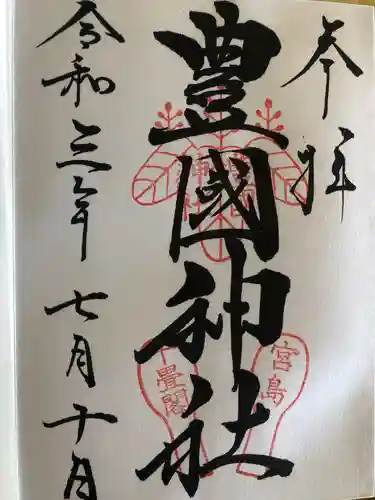 奉拝
豊國神社
宮島
千畳閣
令和三年七月十日